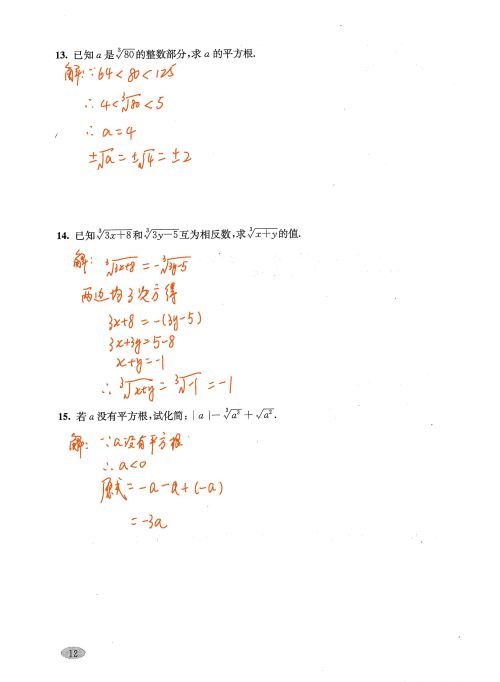 13. 已知 a 是∛80的整数部分,求 a 的平方根.
解:∵64<80<125
∴ 4<∛80<5
∴ a=4
±√a=±√4=±2
14. 已知∛3x+8和∛3y-5互为相反数,求∛x+y的值.
解: ∛3x+8 = -∛3y-5
两边均3次方得
3x+8 = -(3y-5)
3x+3y=5-8
x+y=-1
∴ ∛x+y = ∛-1 = -1
15. 若 a 没有平方根,试化简:|a|-∛a³+√a².
解: ∵a没有平方根
∴ a<0
原式=-a-a+(-a)
=-3a
12